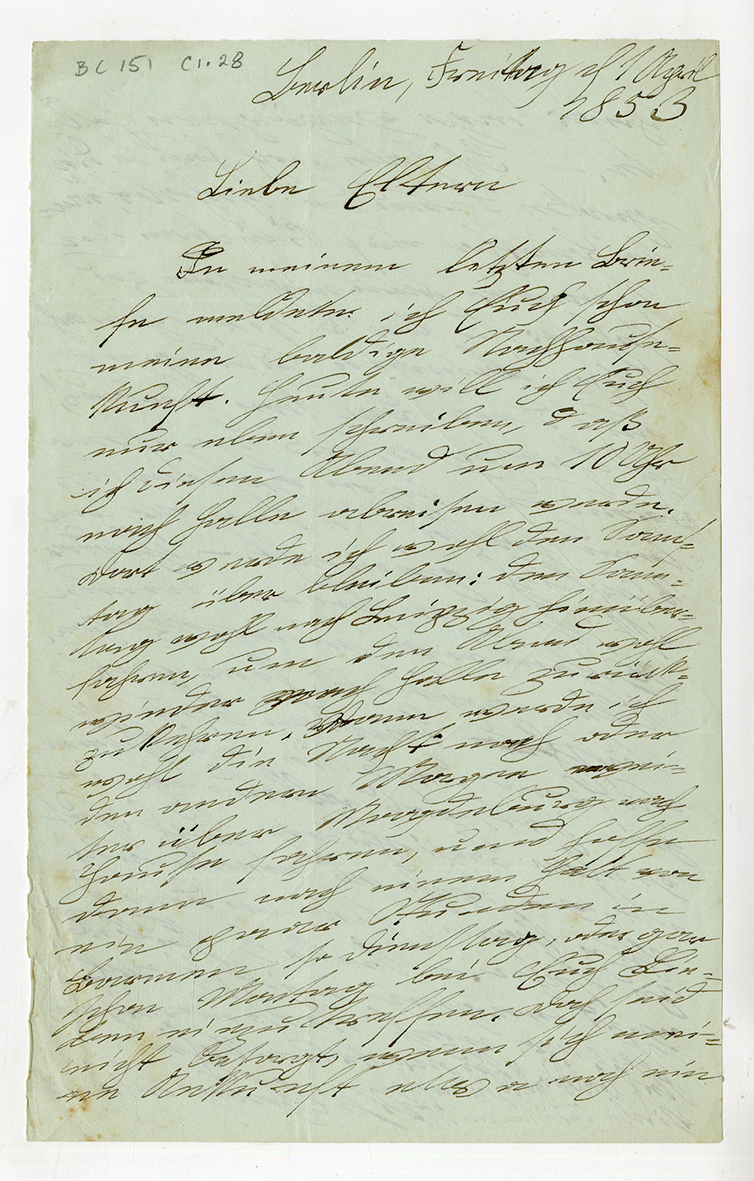 BC 151 C1.28
Berlin, Freitag d 1 April
1853
Liebe Eltern
In meinem letzten Brie-
fe meldete ich Euch schon
meine baldige Nachhause-
kunft. Heute will ich Euch
nur eben schreiben, daß
ich diesen Abend um 10 Uhr
nach Halle abreisen werde.
Dort werde ich wohl den Sam-
tag über bleiben; den Sonn-
tag wohl nach Leipzig hinüber-
fahren, um den Abend wohl
wieder nach Halle zurück-
zukehren. Dann werde ich
wohl die Nacht noch oder
den andern Morgen wei-
ter über Magdeburg nach
Hause fahren, und hoffe
dann nach einem Halt von
ein paar Stunden in
Barmen so Dienstag, oder gar
schon Montag bei Euch Lie-
ben einzutreffen. Doch seid
nicht besorgt, wenn sich mei-
ne Ankunft etwa noch ein